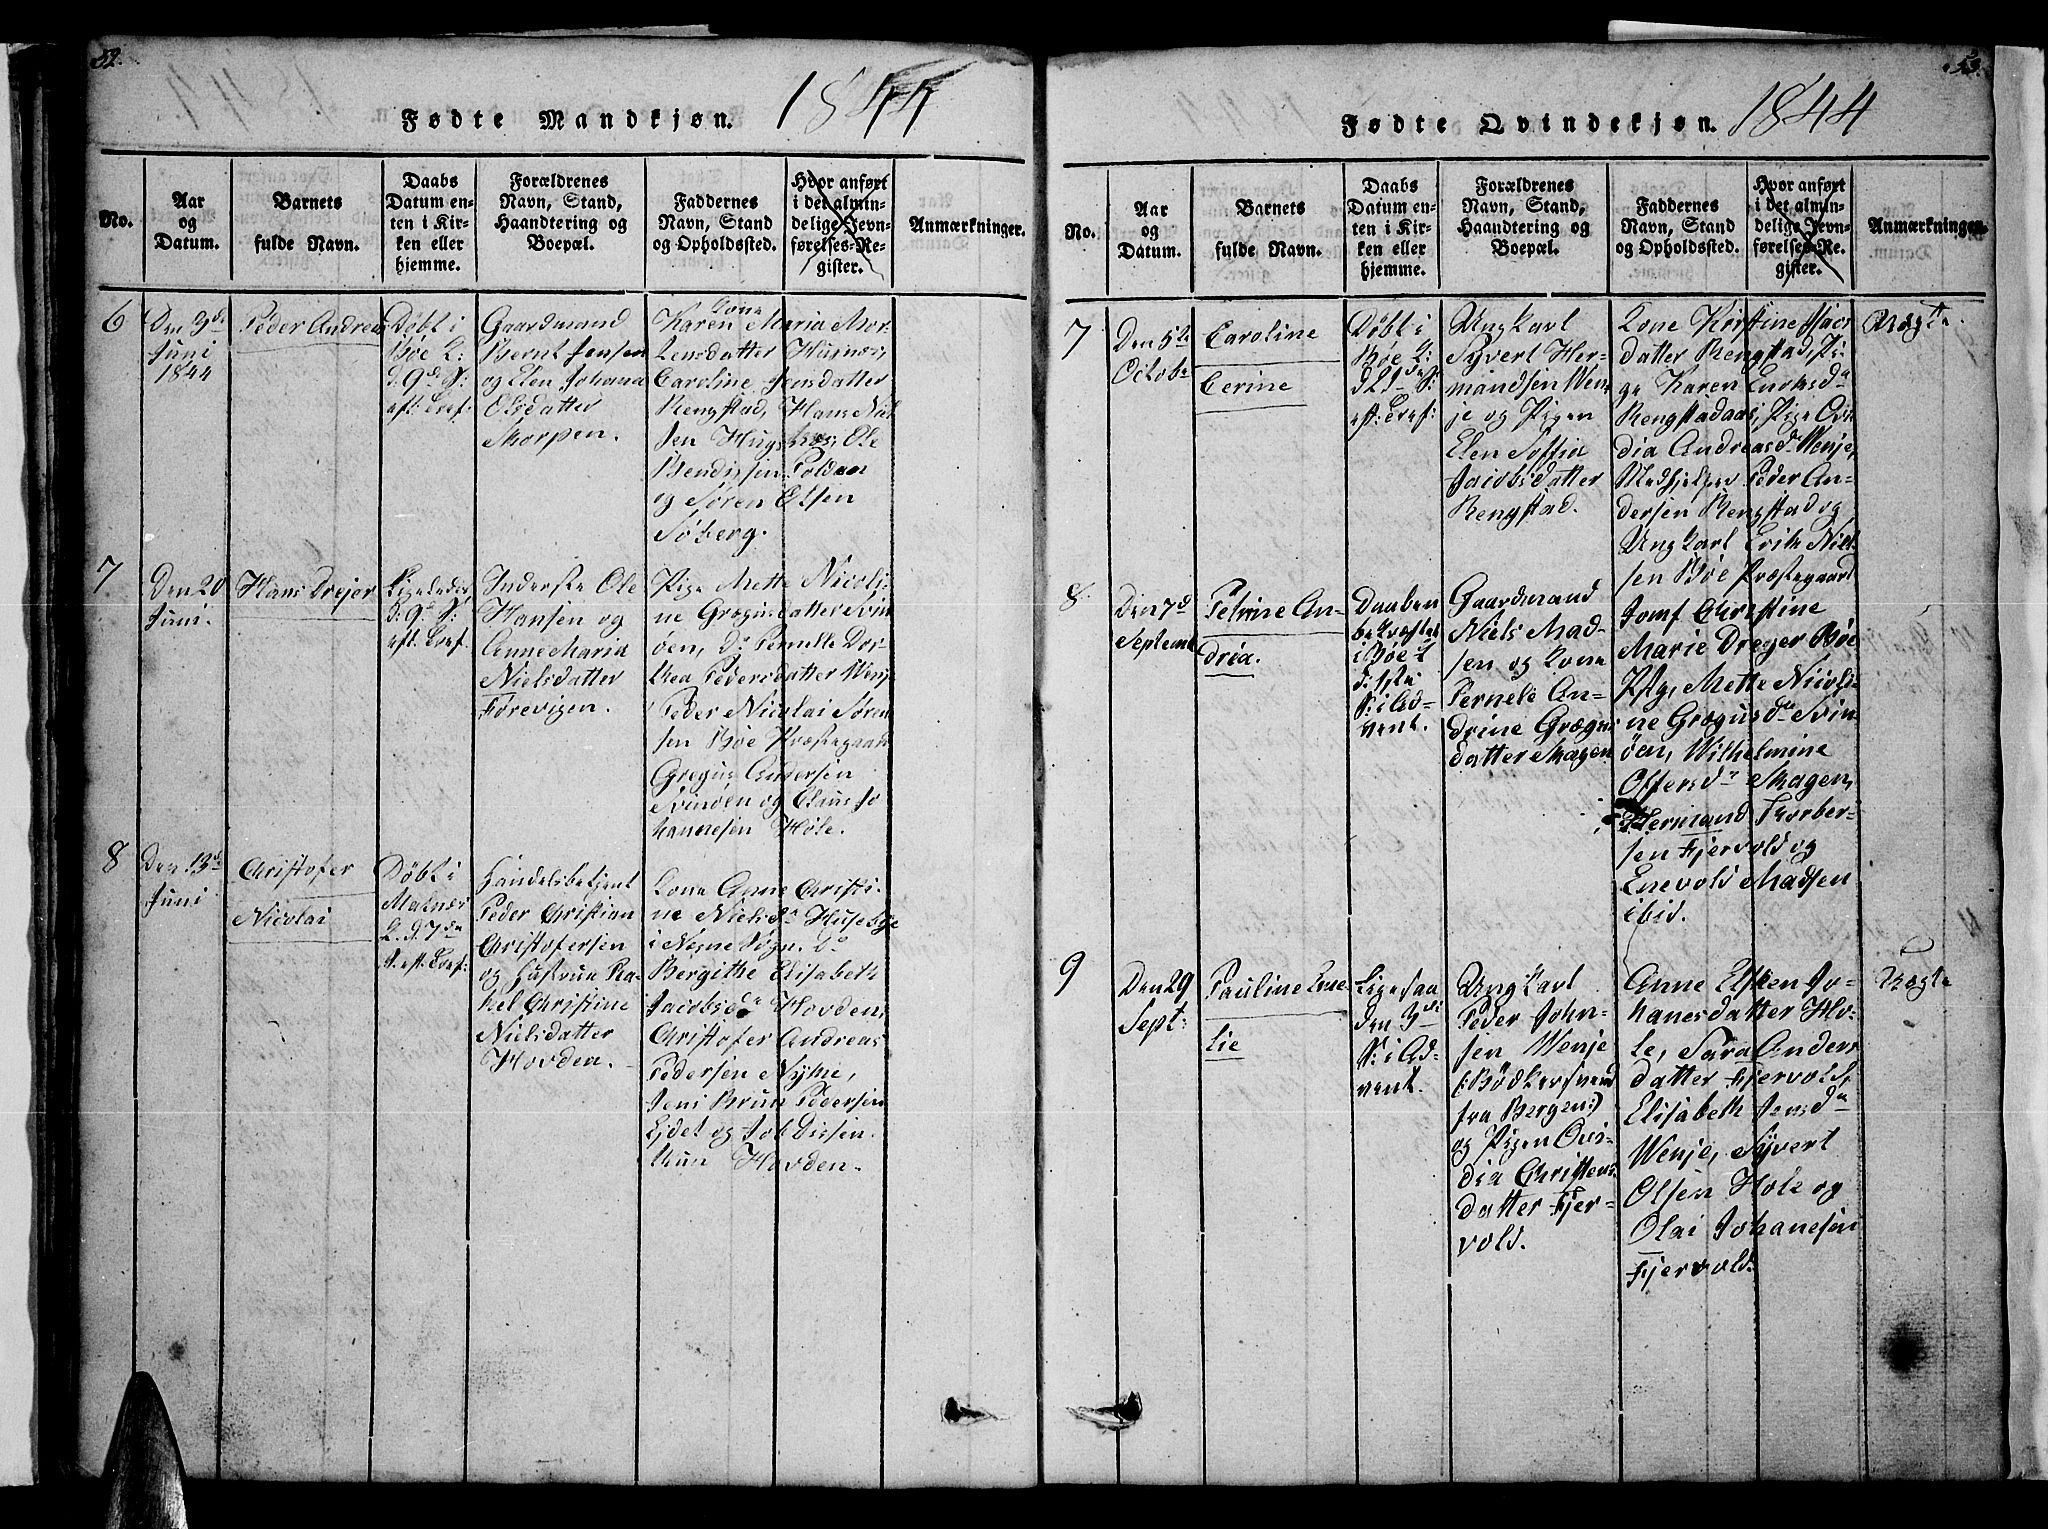 52.
Fødte Mandkjøn. 1844
No.
Aar
og
Datum.
Barnets
fulde Navn.
Daabs
Datum en-
ten i Kir-
ken eller
hjemme.
Forældrenes
Navn, Stand,
Haandtering og
Boepæl.
Faddernes
Navn, Stand
og Opholdssted.
Hvor anført
i det almin-
delige Jevn-
førelses-Re-
gister.
Anmærkninger.
6
Den 3de
Juni
1844
Peder Andreas
Døbt i
Bøe K:
d: 9de S:
eft: Tref:
Gaardmand
Bernt Jensen
og Elen Johana
Olsdatter
Skorpen.
Kone
Karen Maria Mor-
tensdatter Husnes,
Caroline Jensdatter
Rengstad, Hans Nik
sen Hugsnes, Ole
Bendixsen Foldan
og Søren Olsen
Søberg.
7
Den 20
Juni.
Hans Drejer
Ligeledes
d: 9de S:
eft. Tref.
Inderste Ole
Hansen og
Anne Maria
Nielsdatter
Førevigen.
Pige Mette Nicoli-
ne Grægusdatter Svin
øen, do Pernelle Dor-
thea Pedersdatter Wenje
Peder Nicolai Søren
sen Bøe Præstegaard
Gregus Andersen
Svinøen og Claus Jo
hannesen Hole.
8
Den 13de
Juni
Christofer
Nicolai
Døbt i
Malnes
K. d. 7de
S. eft. Tref:
Handelsbetjent
Peder Christian
Christofersen
og Hustrue Ra-
kel Christine
Nielsdatter
Hovden.
Kone Anne Christi-
ne Nielsdr Husebye
i Øxnes Sogn. do
Bergithe Elisabeth
Jacobsdr Hovden,
Christofer Andreas
Pedersen Nyke,
Jens Brun Pedersen
Eidet og Job Dissen
kun Hovden.
53.
Fødte Qvindekjøn. 1844
No.
Aar
og
Datum.
Barnets
fulde Navn.
Daabs
Datum en-
ten i Kir-
ken eller
hjemme.
Forældrenes
Navn, Stand,
Haandtering og
Boepæl.
Faddernes
Navn, Stand
og Opholdssted.
Hvor anført
i det almin-
delige Jevn-
førelses-Re-
gister.
Anmærkninger.
7
Den 5te
Octobr
Caroline
Cerine
Døbt i
Bøe K:
d: 21de S:
eft: Tref:
Ungkarl
Syvert Her-
mandsen Wen-
je og Pigen
Elen Soffia
Jacobsdatter
Rengstad.
Kone Kirstine Isacs
datter Rengstad, Pi-
ge Karen Enoksdr
Rengstadaas, Pige Ovi-
dia Andreasdr Wenje,
Medhjelper Peder An-
dersen Rengstad og
Ungkarl Erik Niel-
sen Bøe Præstegaard
Uægte
8.
Den 7de
Septembr
Petrine An-
drea.
Daaben
bekræftet
i Bøe K
d: 1ste
S: i Ad-
vent.
Gaardmand
Niels Mad-
sen og Kone
Pernele An-
drine Grægus
datter Skagen
Jomf Christine
Marie Dreyer Bøe
Pstg, Mette Nicoli-
ne Grægusdr Svin-
øen, Wilhelmine
Offersdr Skagen,
Hermand Thorber-
sen Fjervold og
Enevold Madsen
ibid.
9
Den 29
Sept:
Pauline Ene-
lie
Ligesaa
den 3die
S: i Ad-
vent.
Ungkarl
Peder John-
sen Wenje
(:Bødkersvend
fra Bergen:)
og Pigen Ovi-
dia Christens-
datter Fjer-
vold.
Anne Elsken Jo-
hanesdatter Ho-
le, Sara Anders
datter Fjervold,
Elisabeth Jensdr
Wenje, Syvert
Olsen Hole og
Olai Johanesen
Fjervold.
Uægte